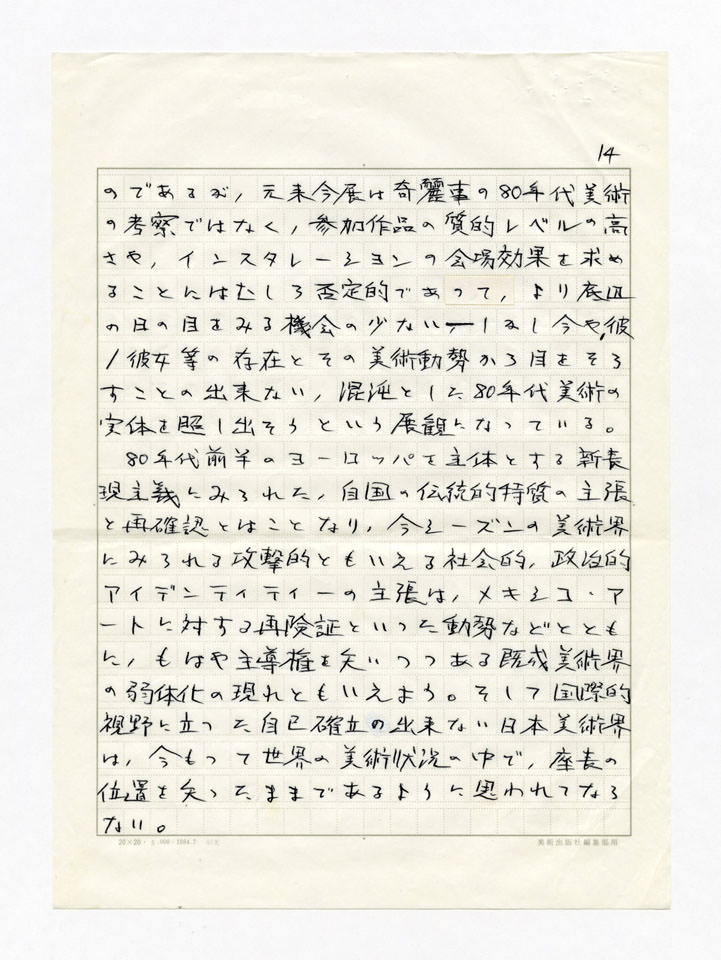 14
のであるが、元来今展は奇麗事の80年代美術
の考察ではなく、参加作品の質的レベルの高
さや、インスタレーションの会場効果を求め
ることにはむしろ否定的であって、より底辺
の日の目をみる機会の少ない──しかし今や、彼
/彼女等の存在とその美術動勢から目をそら
すことの出来ない、混沌とした80年代美術の
実体を照し出そうという展観になっている。
80年代前半のヨーロッパを主体とする新表
現主義にみられた、自国の伝統的特質の主張
と再確認とはことなり、今シーズンの美術界
にみられる攻撃的ともいえる社会的、政治的
アイデンティティーの主張は、メキシコ・ア
ートに対する再険証といった動勢などととも
に、もはや主導権を失いつつある既成美術界
の弱体化の現れともいえよう。そして国際的
視野に立った自己確立の出来ない日本美術界
は、今もって世界の美術状況の中で、座長の
位置を失ったままであるように思われてなら
ない。
20×20・ 1984.7
美術出版社編集部用